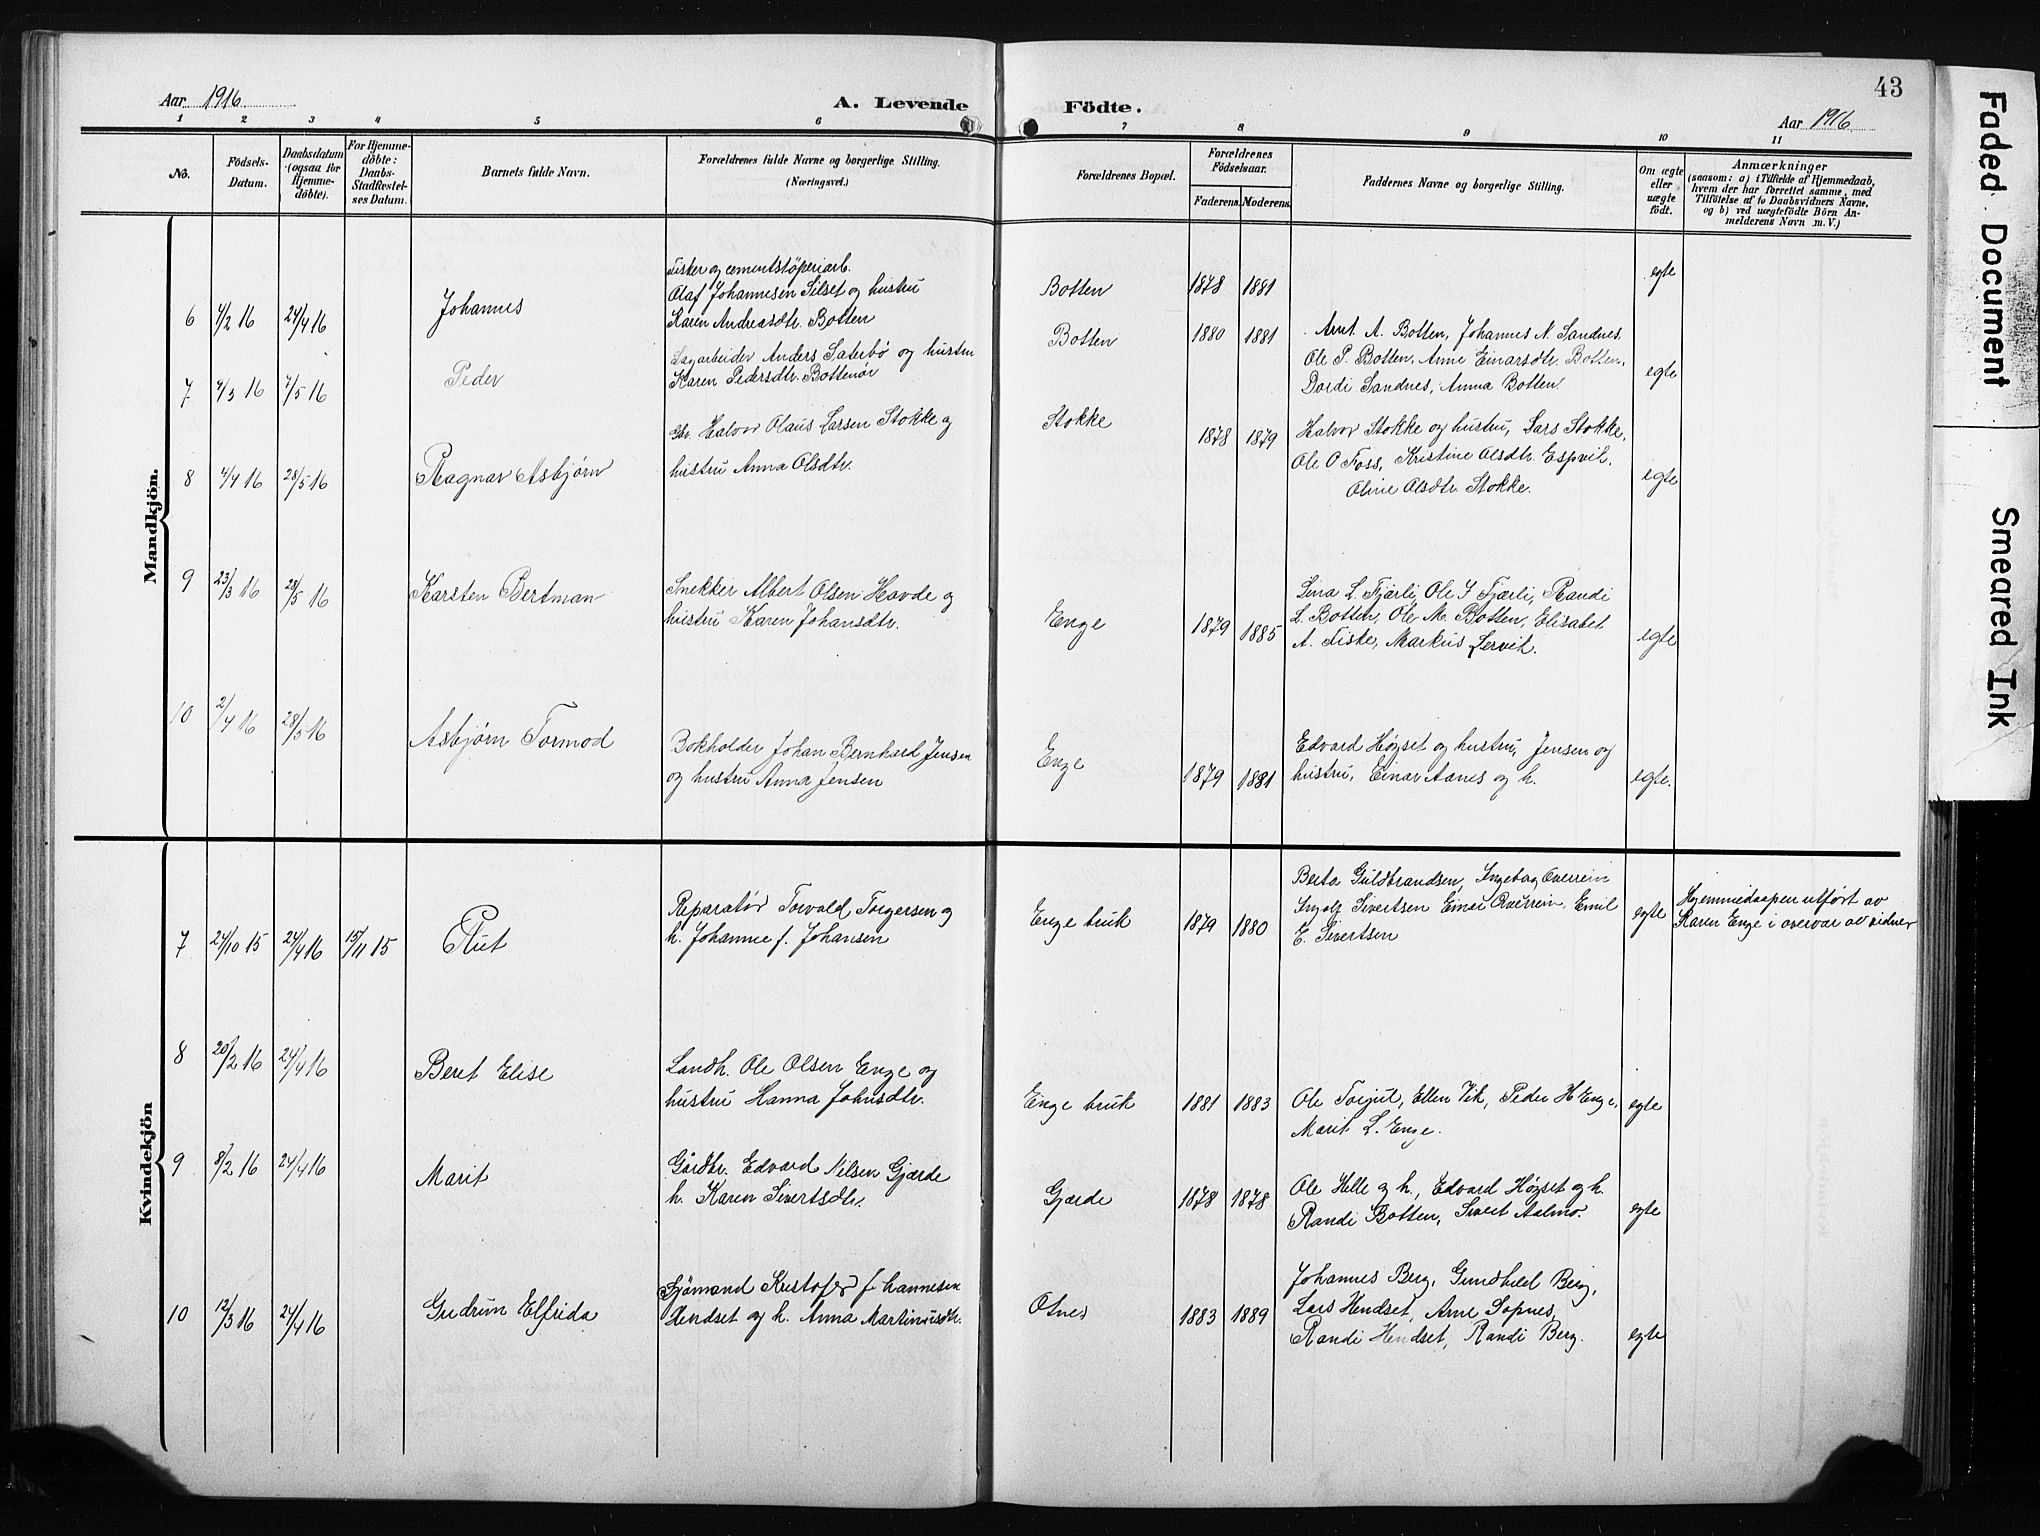 Aar 1916.
A. Levende
Födte.
43
Aar 1916
1 2 3 4 5 6 7 8 9 10 11
No.
Födsels-
Datum.
Daabsdatum
(ogsaa for
Hjemme-
døbte).
For Hjemme-
döbte:
Daabs-
Stadfæstel-
ses Datum.
Barnets fulde Navn.
Forældrenes fulde Navne og borgerlige Stilling.
(Næringsvei.)
Forældrenes Bopæl.
Forældrenes
Födselsaar.
Faderens.
Moderens.
Faddernes Navne og borgerlige Stilling.
Om ægte
eller
uægte
født.
Anmærkninger
(saasom: a) i Tilfælde af Hjemmedaab,
hvem der har forrettet samme, med
Tilföielse af to Daabsvidners Navne,
og b) ved uægtefödte Börn An-
melderens Navn m. V.)
Mandkjön.
6 4/2 16 24/4 16 Johannes
Fisker og cementstöperiarb.
Olaf Johannesen Silset og hustru
Karen Andreasdtr. Botten
Botten 1878 1881 egte
7 4/3 16 7/5 16 Peder
Sagarbeider Anders Saterbø og hustru
Karen Pedersdtr. Bottenør
Botten 1880 1881
Arnt A. Botten, Johannes N. Sandnes.
Ole P. Botten, Anne Einarsdtr. Botten,
Dordi Sandnes, Anna Botten
egte
8 4/4 16 28/5 16 Ragnar Asbjørn
Gbr. Halvor Olaus Larsen Stokke og
hustru Anna Olsdtr.
Stokke 1878 1879
Halvor Stokke og hustru, Lars Stokke,
Ole O Foss, Kristine Olsdtr. Espvik,
Oline Olsdtr. Stokke.
egte
9 23/3 16 28/5 16 Karsten Bertman
Snekker Albert Olsen Havde og
hustru Karen Johansdtr.
Enge 1879 1885
Lina L. Fjærli, Ole I Fjærli, Randi
L. Botten, Ole M. Botten, Elisabet
A. Fiske, Markus Lervik.
egte
10 2/4 16 28/5 16 Asbjørn Tormod
Bokholder Johan Bernhard Jensen
og hustru Anna Jensen
Enge 1879 1881
Edvard Høgset og hustru, Jensen og
hustru, Einar Aanes og h.
egte.
Kvindekjön
7 24/10 15 24/4 16 15/11 15 Rut
Reparatør Torvald Torgersen og
h. Johanne f. Johansen
Enge bruk 1879 1880
Berta Guldbrandsen, Ingeborg Overrein
Ingolf Sivertsen Einar Overrein, Emil
E. Sivertsen
egte
Hjemmedaapen utført av
Karen Enge i overvær av vidner
8 20/2 16 24/4 16 Beret Elise
Landh. Ole Olsen Enge og
hustru Hanna Johnsdtr.
Enge bruk 1881 1883
Ole Torjul, Ellen Vik, Peder H Enge,
Marit L. Enge.
egte
9 8/2 16 24/4 16 Marit
Gårdbr. Edvard Nilsen Gjærde
h. Karen Sivertsdtr.
Gjærde 1878 1878
Ole Helle og h., Edvard Høgset og h.
Randi Botten, Sivert Aalmo.
egte
10 12/3 16 24/4 16 Gudrun Elfrida
Sjømand Kristofer Johannesen
Hendset og h. Anna Martinusdtr.
Otnes 1883 1889
Johannes Berg, Gundhild Berg,
Lars Hendset, Arne Sopnes,
Randi Hendset, Randi Berg.
egte
Faded Document
Smeared Ink